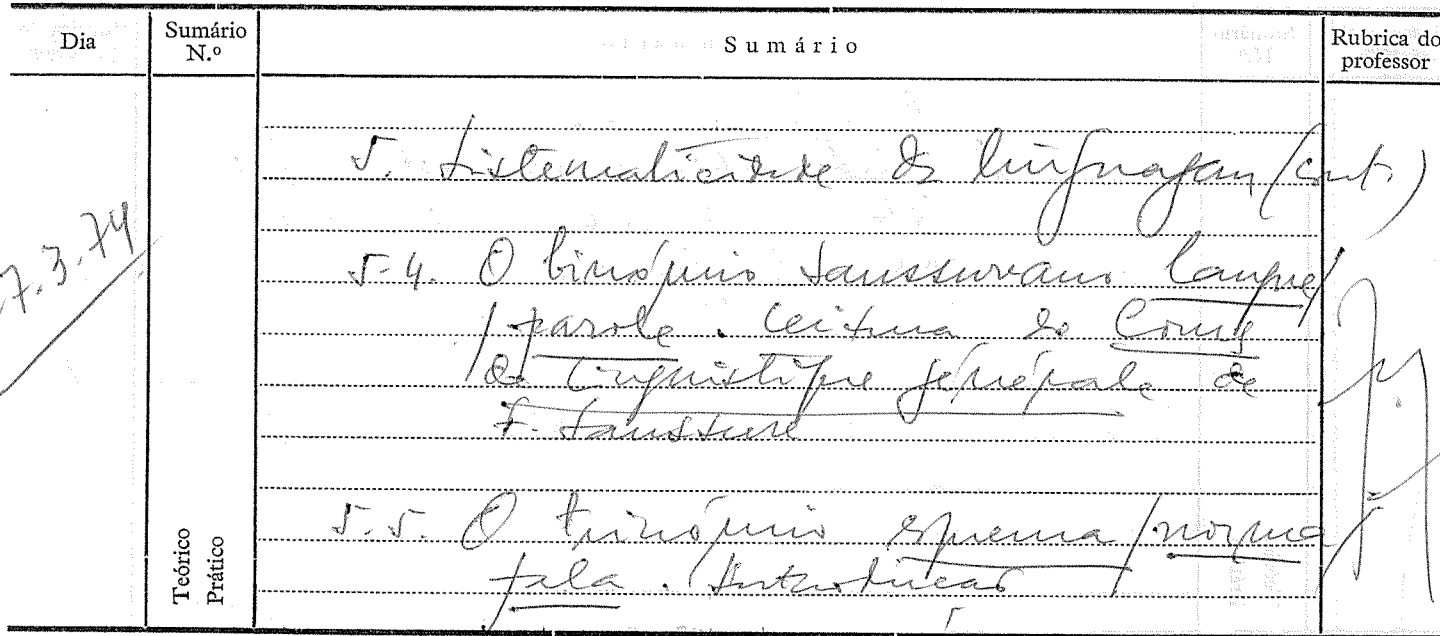 Dia
Sumário N.º
Sumário
Rubrica do professor
7.3.74
5. Sistematicidade da linguagem (cont.)
5.4. O binómio saussureano langue/
/parole. Leitura do Cours
de linguistique générale de
F. Saussure
5.5. O trinómio esquema/norma/
fala. Introdução
Teórico
Prático